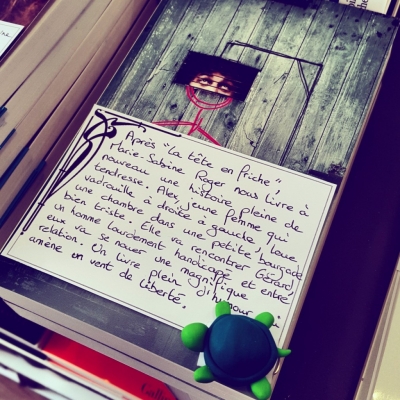 Après "La tête en friche",
Marie-Sabine Roger nous livre à
nouveau une histoire pleine de
tendresse. Alex, jeune femme qui
vadrouille à droite à gauche, loue
une chambre dans une petite bourgade
bien triste. Elle va rencontrer Gérard,
un homme lourdement handicapé et entre
eux va se nouer une magnifique
relation. Un livre plein d'humour qui
amène un vent de liberté.